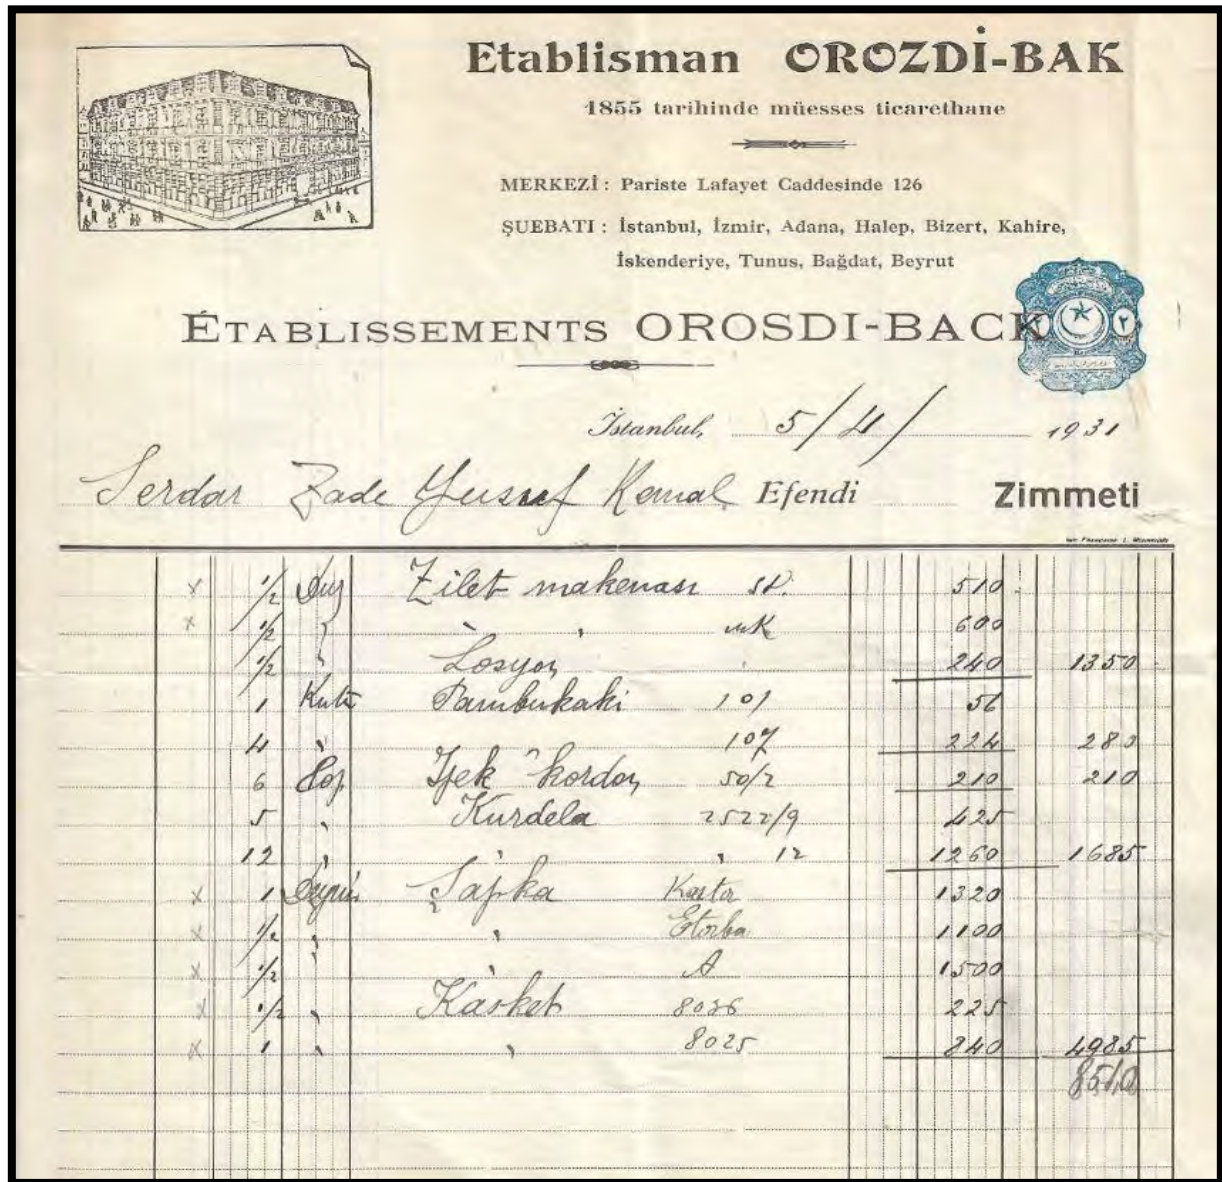 Etablisman OROZDİ-BAK
1855 tarihinde müesses ticarethane
MERKEZİ : Pariste Lafayet Caddesinde 126
ŞUEBATI : İstanbul, İzmir, Adana, Halep, Bizert, Kahire,
İskenderiye, Tunus, Bağdat, Beyrut
ÉTABLISSEMENTS OROSDI-BACK
٢
İstanbul, 5/4/ 1931
Serdar Zade Yusuf Kemal Efendi Zimmeti
x 1/2 Duz Zilet makenası 510
x 1/2 " " " 600
1/2 " Losyon 240 1350
1 Kutu Pambukaki 101 56
4 " 107 224 280
6 kordon 50/2 210 210
5 " Kurdela 2522/9 425
12 " " " 12 1260 1685
x 1 Şapka 1320
x 1/2 " " 1100
x 1/2 " A 1500
x 1/2 " Kasket 8026 225
x 1 " " 8025 840 4985
8510